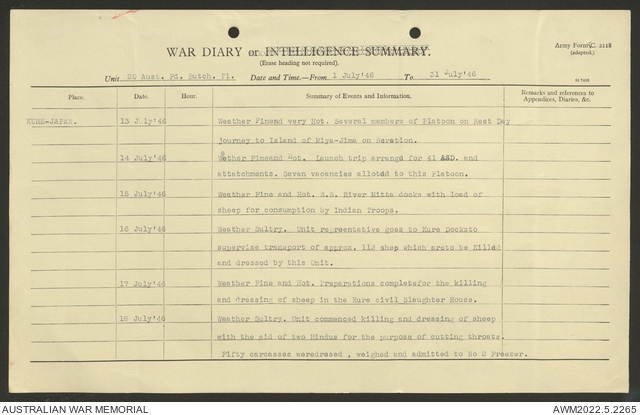 WAR DIARY or INTELLIGENCE SUMMARY.
Army Form C. 2118
(adapted.)
(Erase heading not required).
Unit 20 Aust. Fd. Butch. Pl. Date and Time.—From 1 July'46 To 31 July'46
Place. Date. Hour. Summary of Events and Information. Remarks and references to
Appendices, Diaries, &c.
KURE-JAPAN. 13 July'46 Weather Fineand very Hot. Several members of Platoon on Rest Day
journey to Island of Miya-Jima on Reration.
14 July'46 Weather Fineand Hot. Launch trip arrangd for 41 ASD. and
attatchments. Seven vacancies alloted to this Platoon.
15 July'46 Weather Fine and Hot. S.S. River Mitta docks with load of
sheep for consumption by Indian Troops.
16 July'46 Weather Sultry. Unit representative goes to Kure Docksto
supervise transport of approx. 112 shep which areto be Killed
and dressed by this Unit.
17 July'46 Weather Fine and Hot. Preparations completefor the killing
and dressing of sheep in the Kure civil Slaughter House.
18 July'46 Weather Sultry. Unit commenced killing and dressing of sheep
with the aid of two Hindus for the purpose of cutting throats.
Fifty carcasses weredressed , weighed and admitted to No 2 Freezer.
AUSTRALIAN WAR MEMORIAL AWM2022.5.2265